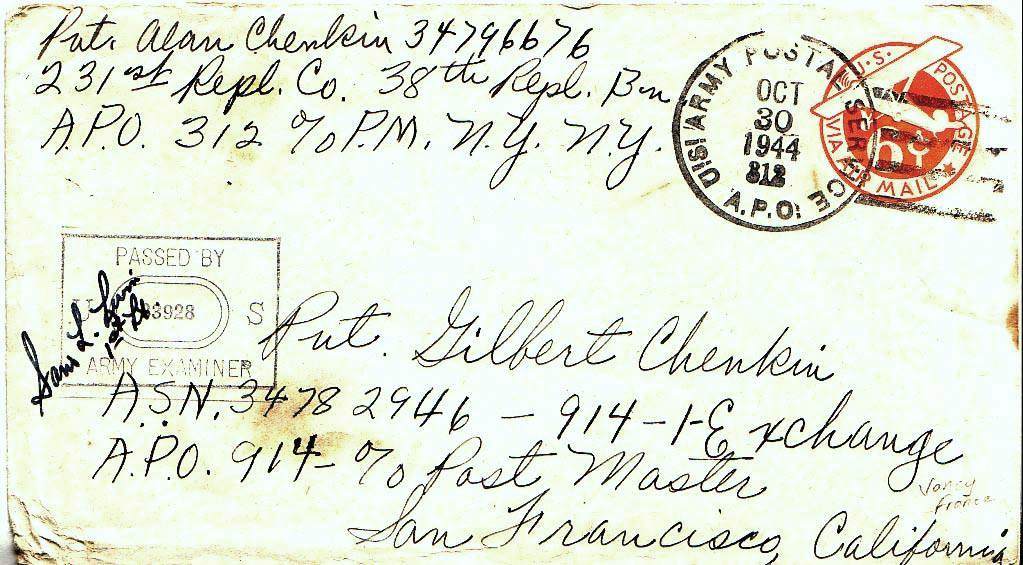 Pvt. Alan Chenkin 34796676
231st Repl. Co. 38th Repl. Bn
A.P.O. 312 c/o P.M. N.Y. N.Y.
U.S. ARMY POSTAL SERVICE
OCT
30
1944
312
A.P.O.
U.S. POSTAGE
6¢
VIA AIR MAIL
PASSED BY
U 33928 S
ARMY EXAMINER
Sam L.
1st Lt.
Pvt. Gilbert Chenkin
A.S.N. 34782946 - 914-1-Exchange
A.P.O. 914 - c/o Post Master
San Francisco, California
France